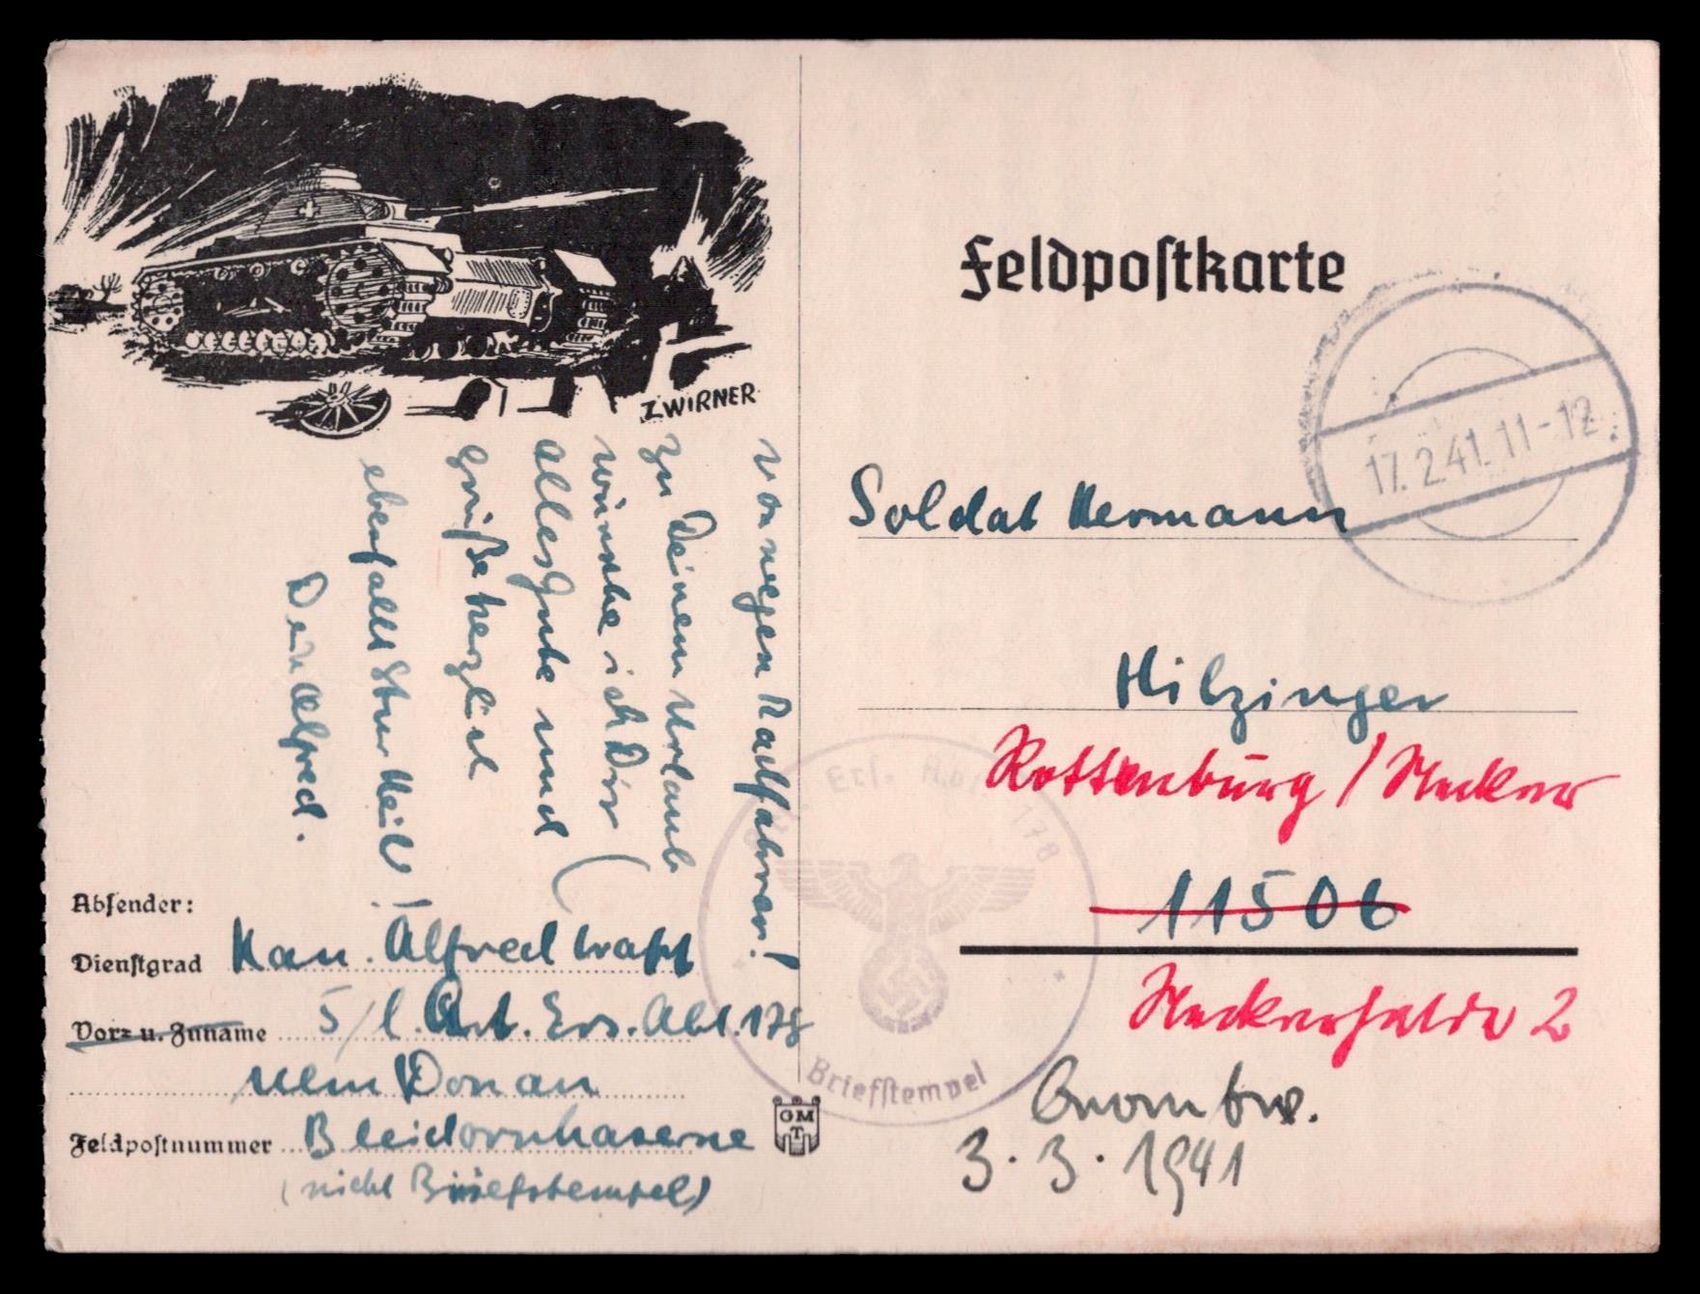 ZWIRNER
von wegen Radfahren!
zu Deinem Urlaub
wünsche ich Dir
alles Gute und
grüße herzlich
ebenfalls Heil!
Dein Alfred.
Absender:
Dienstgrad Kan. Alfred
Vor- u. Zuname 5/l. Art. Ers. Abt. 178
Ulm Donau
Feldpostnummer Bleidornkaserne
(nicht Briefstempel)
GMT
Feldpostkarte
17.2.41.11-12
Soldat Hermann
Hilzinger
Rottenburg / Neckar
11506
Neckarhalde 2
3.3.1941
Ers. Abt. 178
Briefstempel